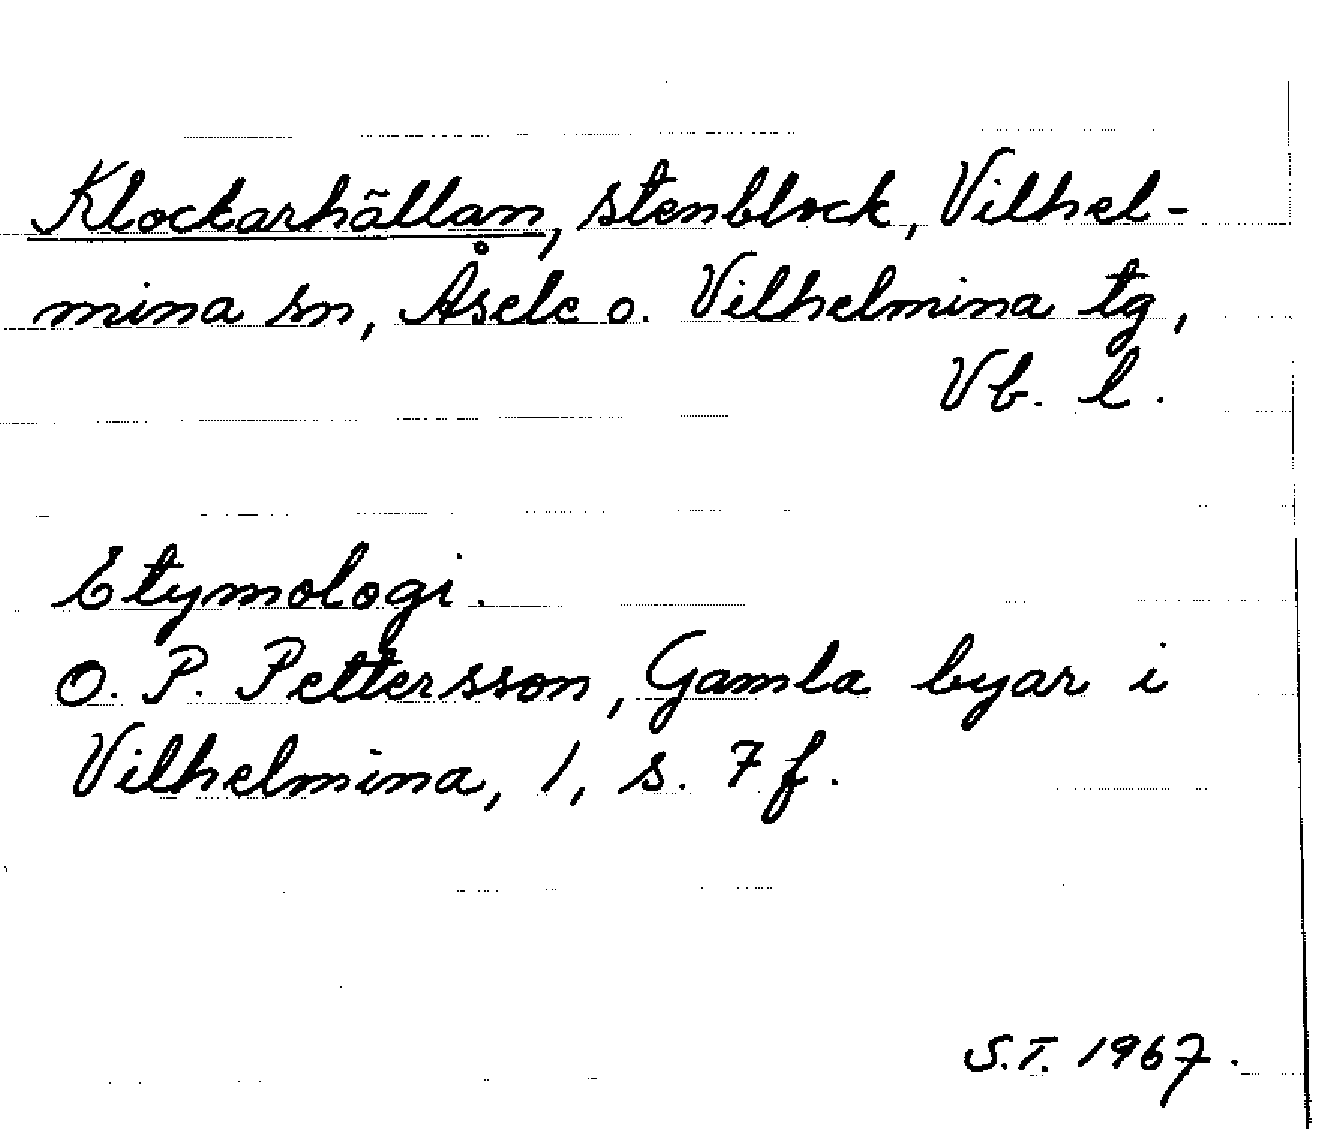 Klockarhällan, stenblock, Vilhel-
mina sn, Åsele o. Vilhelmina tg,
Vb. l.
Etymologi.
O. P. Pettersson, Gamla byar i
Vilhelmina, 1, s. 7 f.
S.T. 1967.